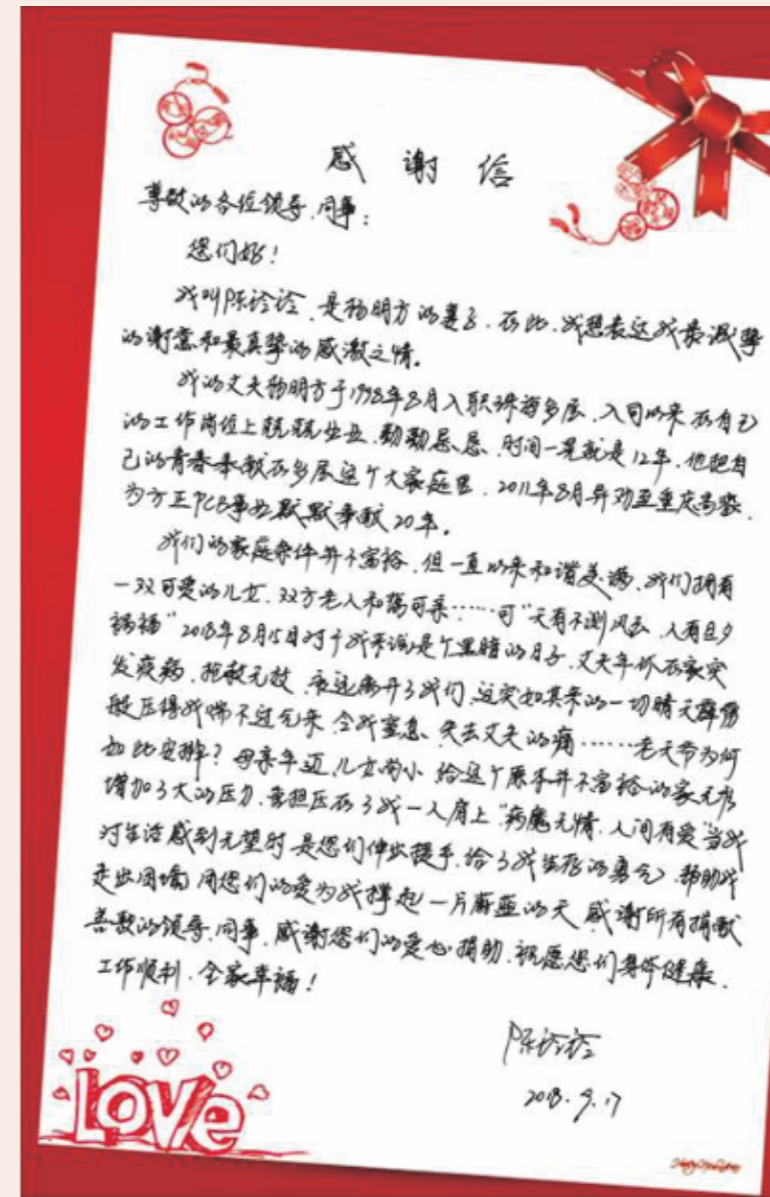 感谢信
尊敬的各位领导、同事：
您们好！
我叫陈诊诊，是杨明方的妻子，在此，我想表达我最诚挚
的谢意和最真挚的感激之情。
我的丈夫杨明方于1998年8月入职珠海多层，入司以来在自己
的工作岗位上兢兢业业，勤勤恳恳，时间一晃就是12年，他把自
己的青春奉献在多层这个大家庭里，2011年8月异动至重庆高密，
为方正PCB事业默默奉献20年。
我们的家庭条件并不富裕，但一直以来和谐美满，我们拥有
一双可爱的儿女，双方老人和蔼可亲……可"天有不测风云，人有旦夕
祸福"2018年8月15日对于我来说是个黑暗的日子，丈夫年休在家突
发疾病，抢救无效，永远离开了我们，这突如其来的一切晴天霹雳
般压得我喘不过气来，令我窒息，失去丈夫的痛……老天爷为何
如此安排？母亲年迈，儿女尚小，给这个原本并不富裕的家无形
增加了大的压力，重担压在了我一人肩上，"病魔无情，人间有爱"当我
对生活感到无望时，是您们伸出援手，给了我生存的勇气，帮助我
走出困境，用您们的爱为我撑起一片蔚蓝的天，感谢所有捐献
善款的领导、同事，感谢您们的爱心捐助，祝愿您们身体健康，
工作顺利，全家幸福！
陈诊诊
2018.9.17
LOVe